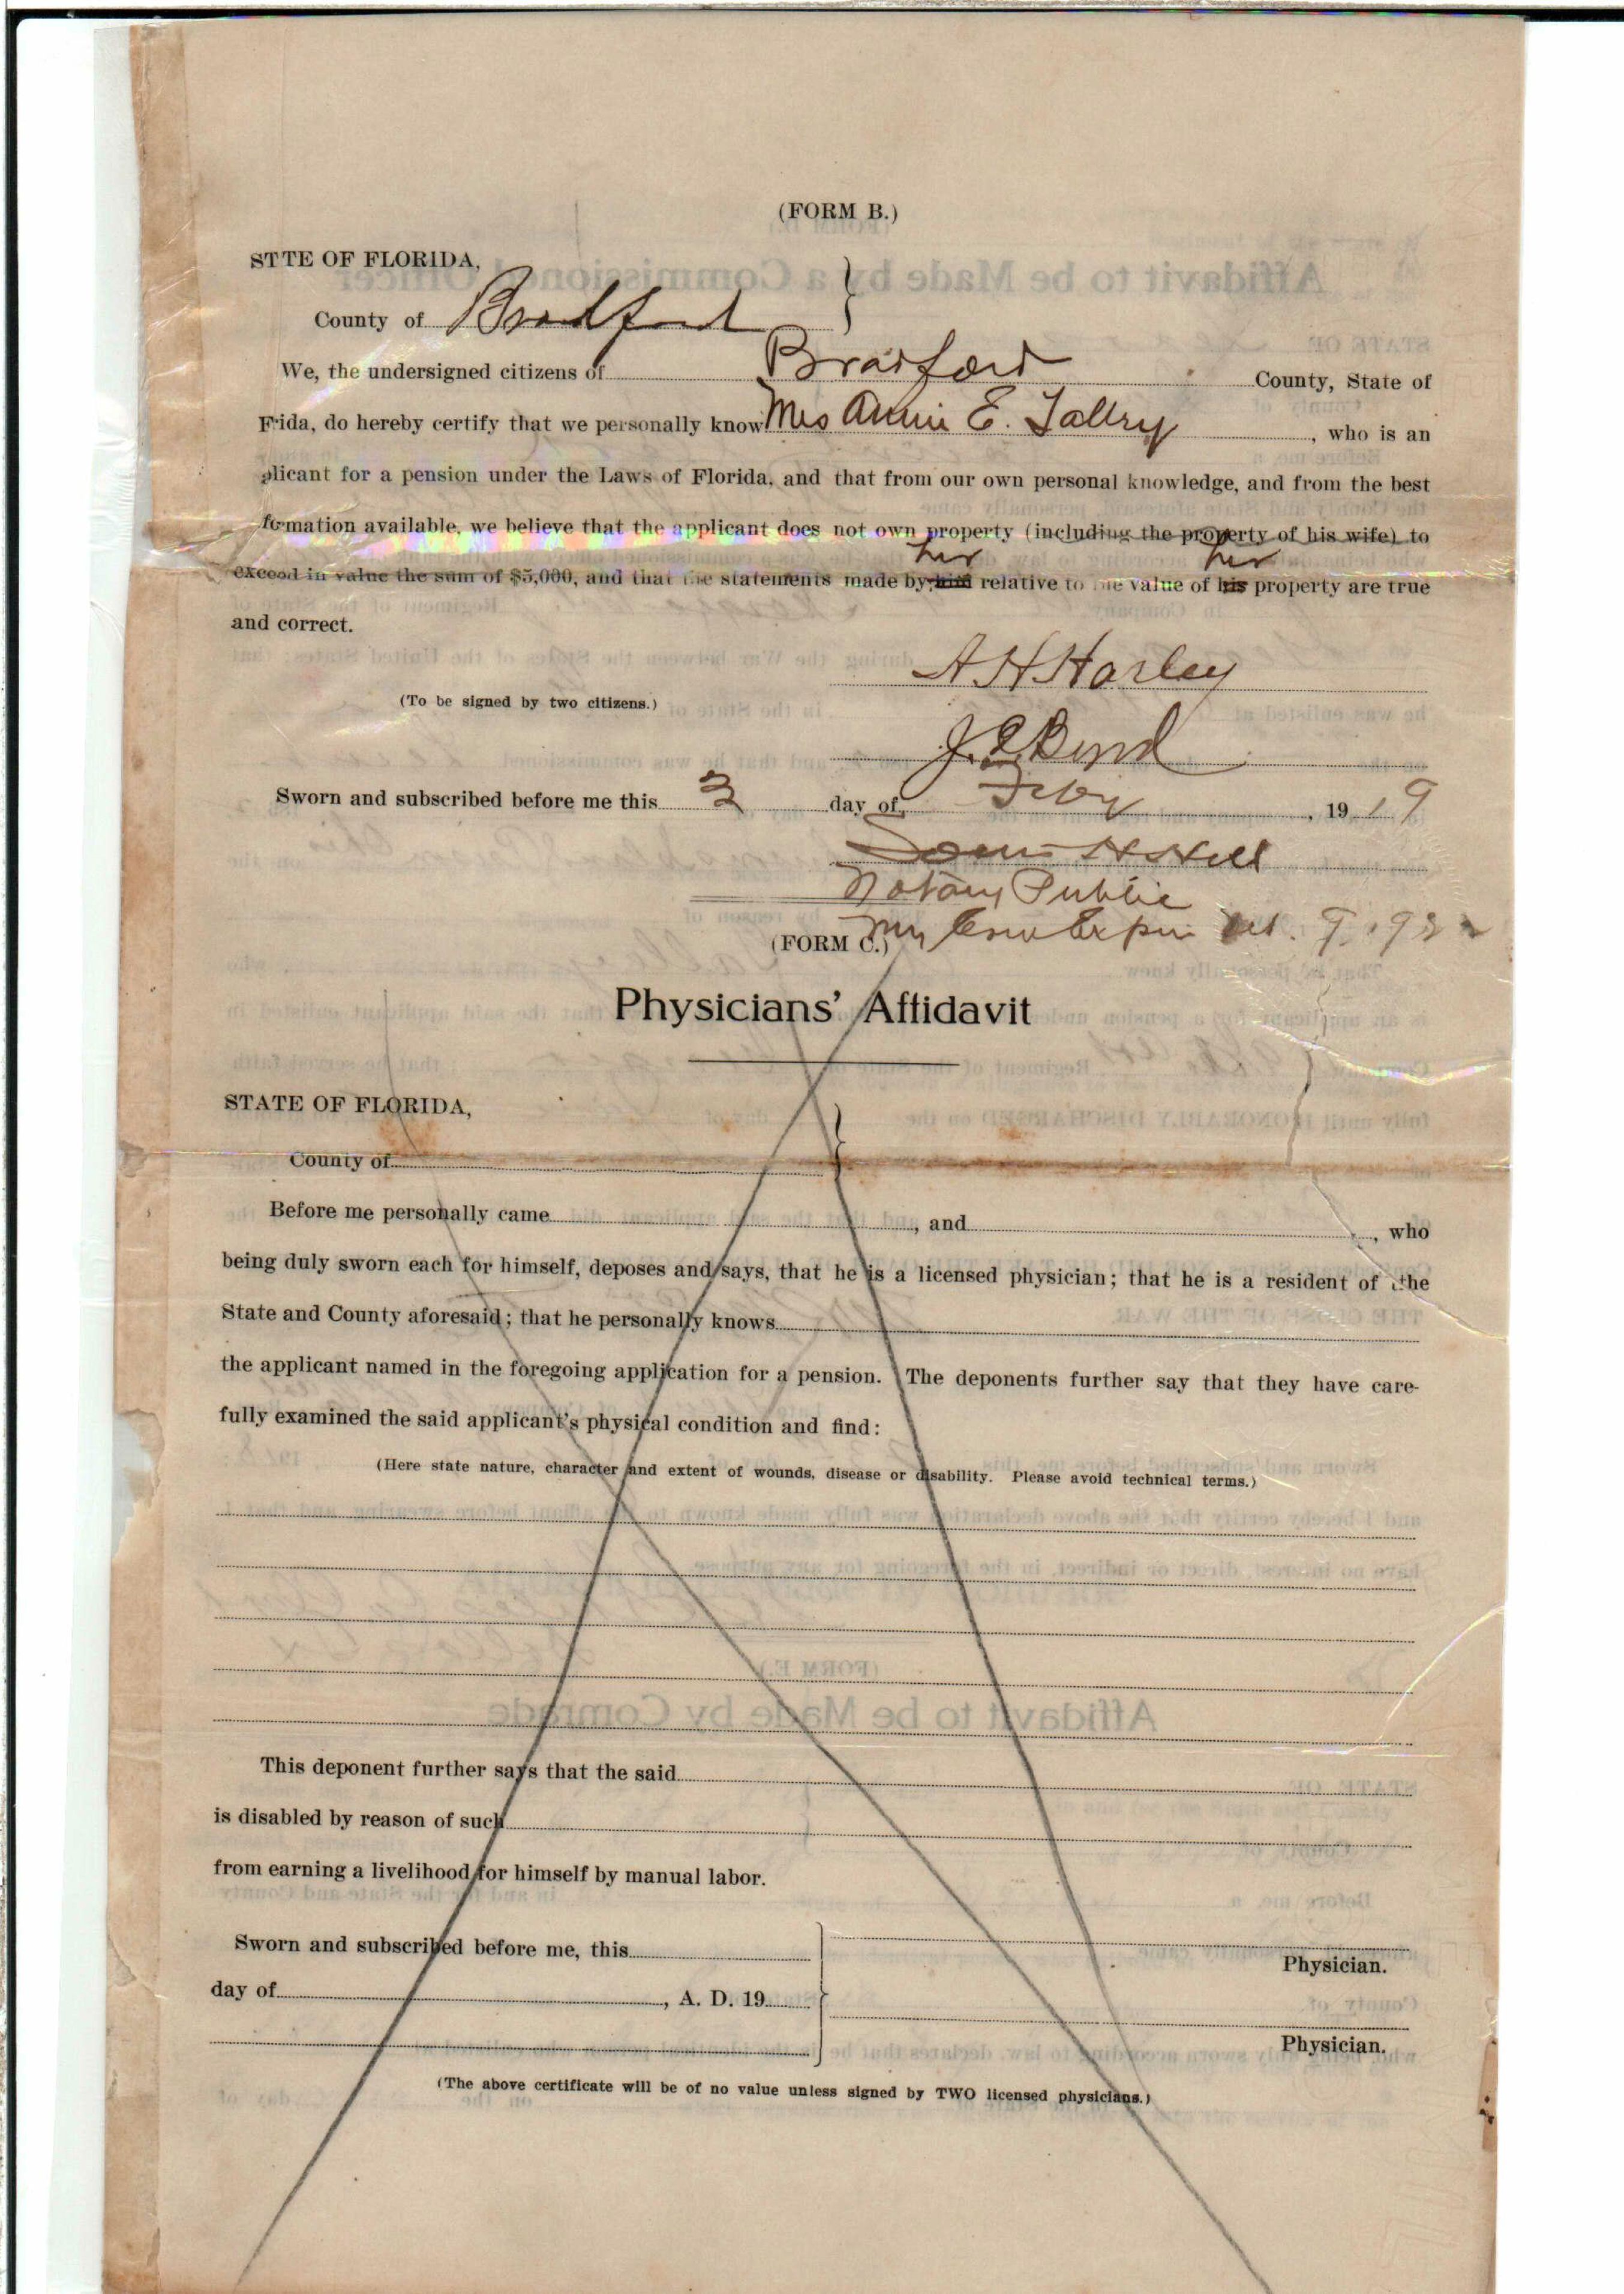 (FORM B.)
STTE OF FLORIDA,
County of Bradford
We, the undersigned citizens of Bradford County, State of
Frida, do hereby certify that we personally know Mrs Annie E. , who is an
plicant for a pension under the Laws of Florida, and that from our own personal knowledge, and from the best
formation available, we believe that the applicant does not own property (including the property of his wife) to
her her
exceed in value the sum of $5,000, and that the statements made by him relative to the value of his property are true
and correct.
A H Harley
(To be signed by two citizens.)
J. E.
Sworn and subscribed before me this 3 day of Feby, 1919
H Hill
Notary Public
(FORM C.) My Com Expires Oct. 9, 1922
Physicians' Affidavit
STATE OF FLORIDA,
County of
Before me personally came , and , who
being duly sworn each for himself, deposes and says, that he is a licensed physician; that he is a resident of the
State and County aforesaid; that he personally knows
the applicant named in the foregoing application for a pension. The deponents further say that they have care-
fully examined the said applicant's physical condition and find:
(Here state nature, character and extent of wounds, disease or disability. Please avoid technical terms.)
This deponent further says that the said
is disabled by reason of such
from earning a livelihood for himself by manual labor.
Sworn and subscribed before me, this
Physician.
day of , A. D. 19
Physician.
(The above certificate will be of no value unless signed by TWO licensed physicians.)